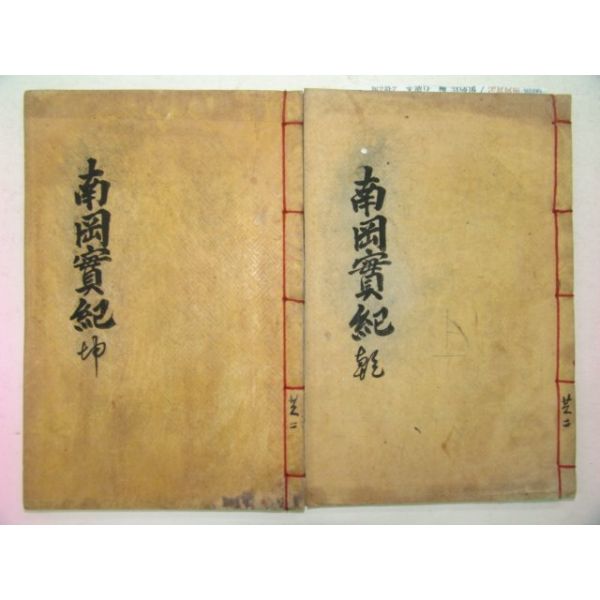 南岡實紀
乾
共二
南岡實紀
坤
共二